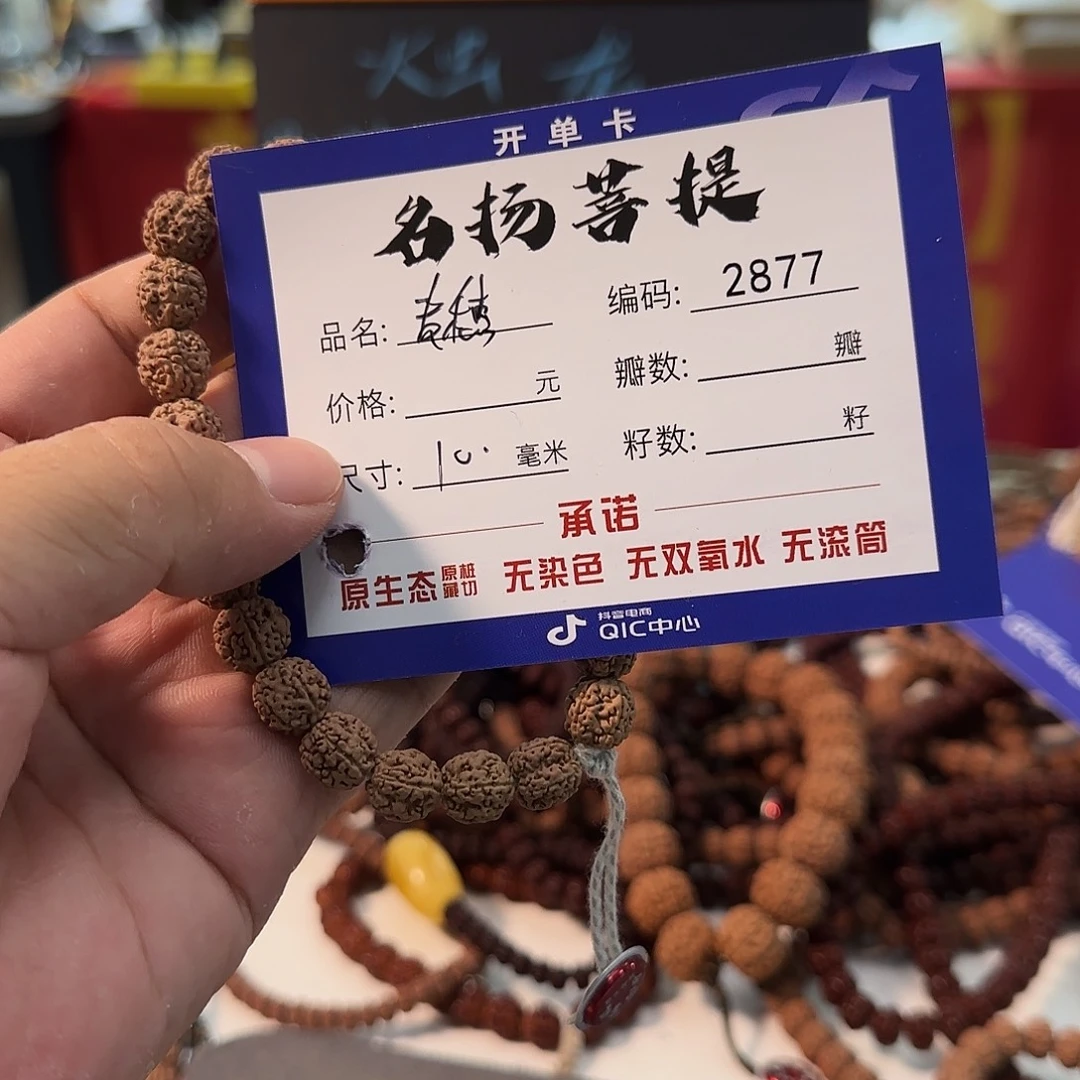 开单卡
名扬菩提
品名:
编码: 2877
价格: 元
瓣数: 瓣
尺寸: 10. 毫米
籽数: 籽
承诺
原生态 原桩藏切 无染色 无双氧水 无滚筒
抖音电商
QIC中心